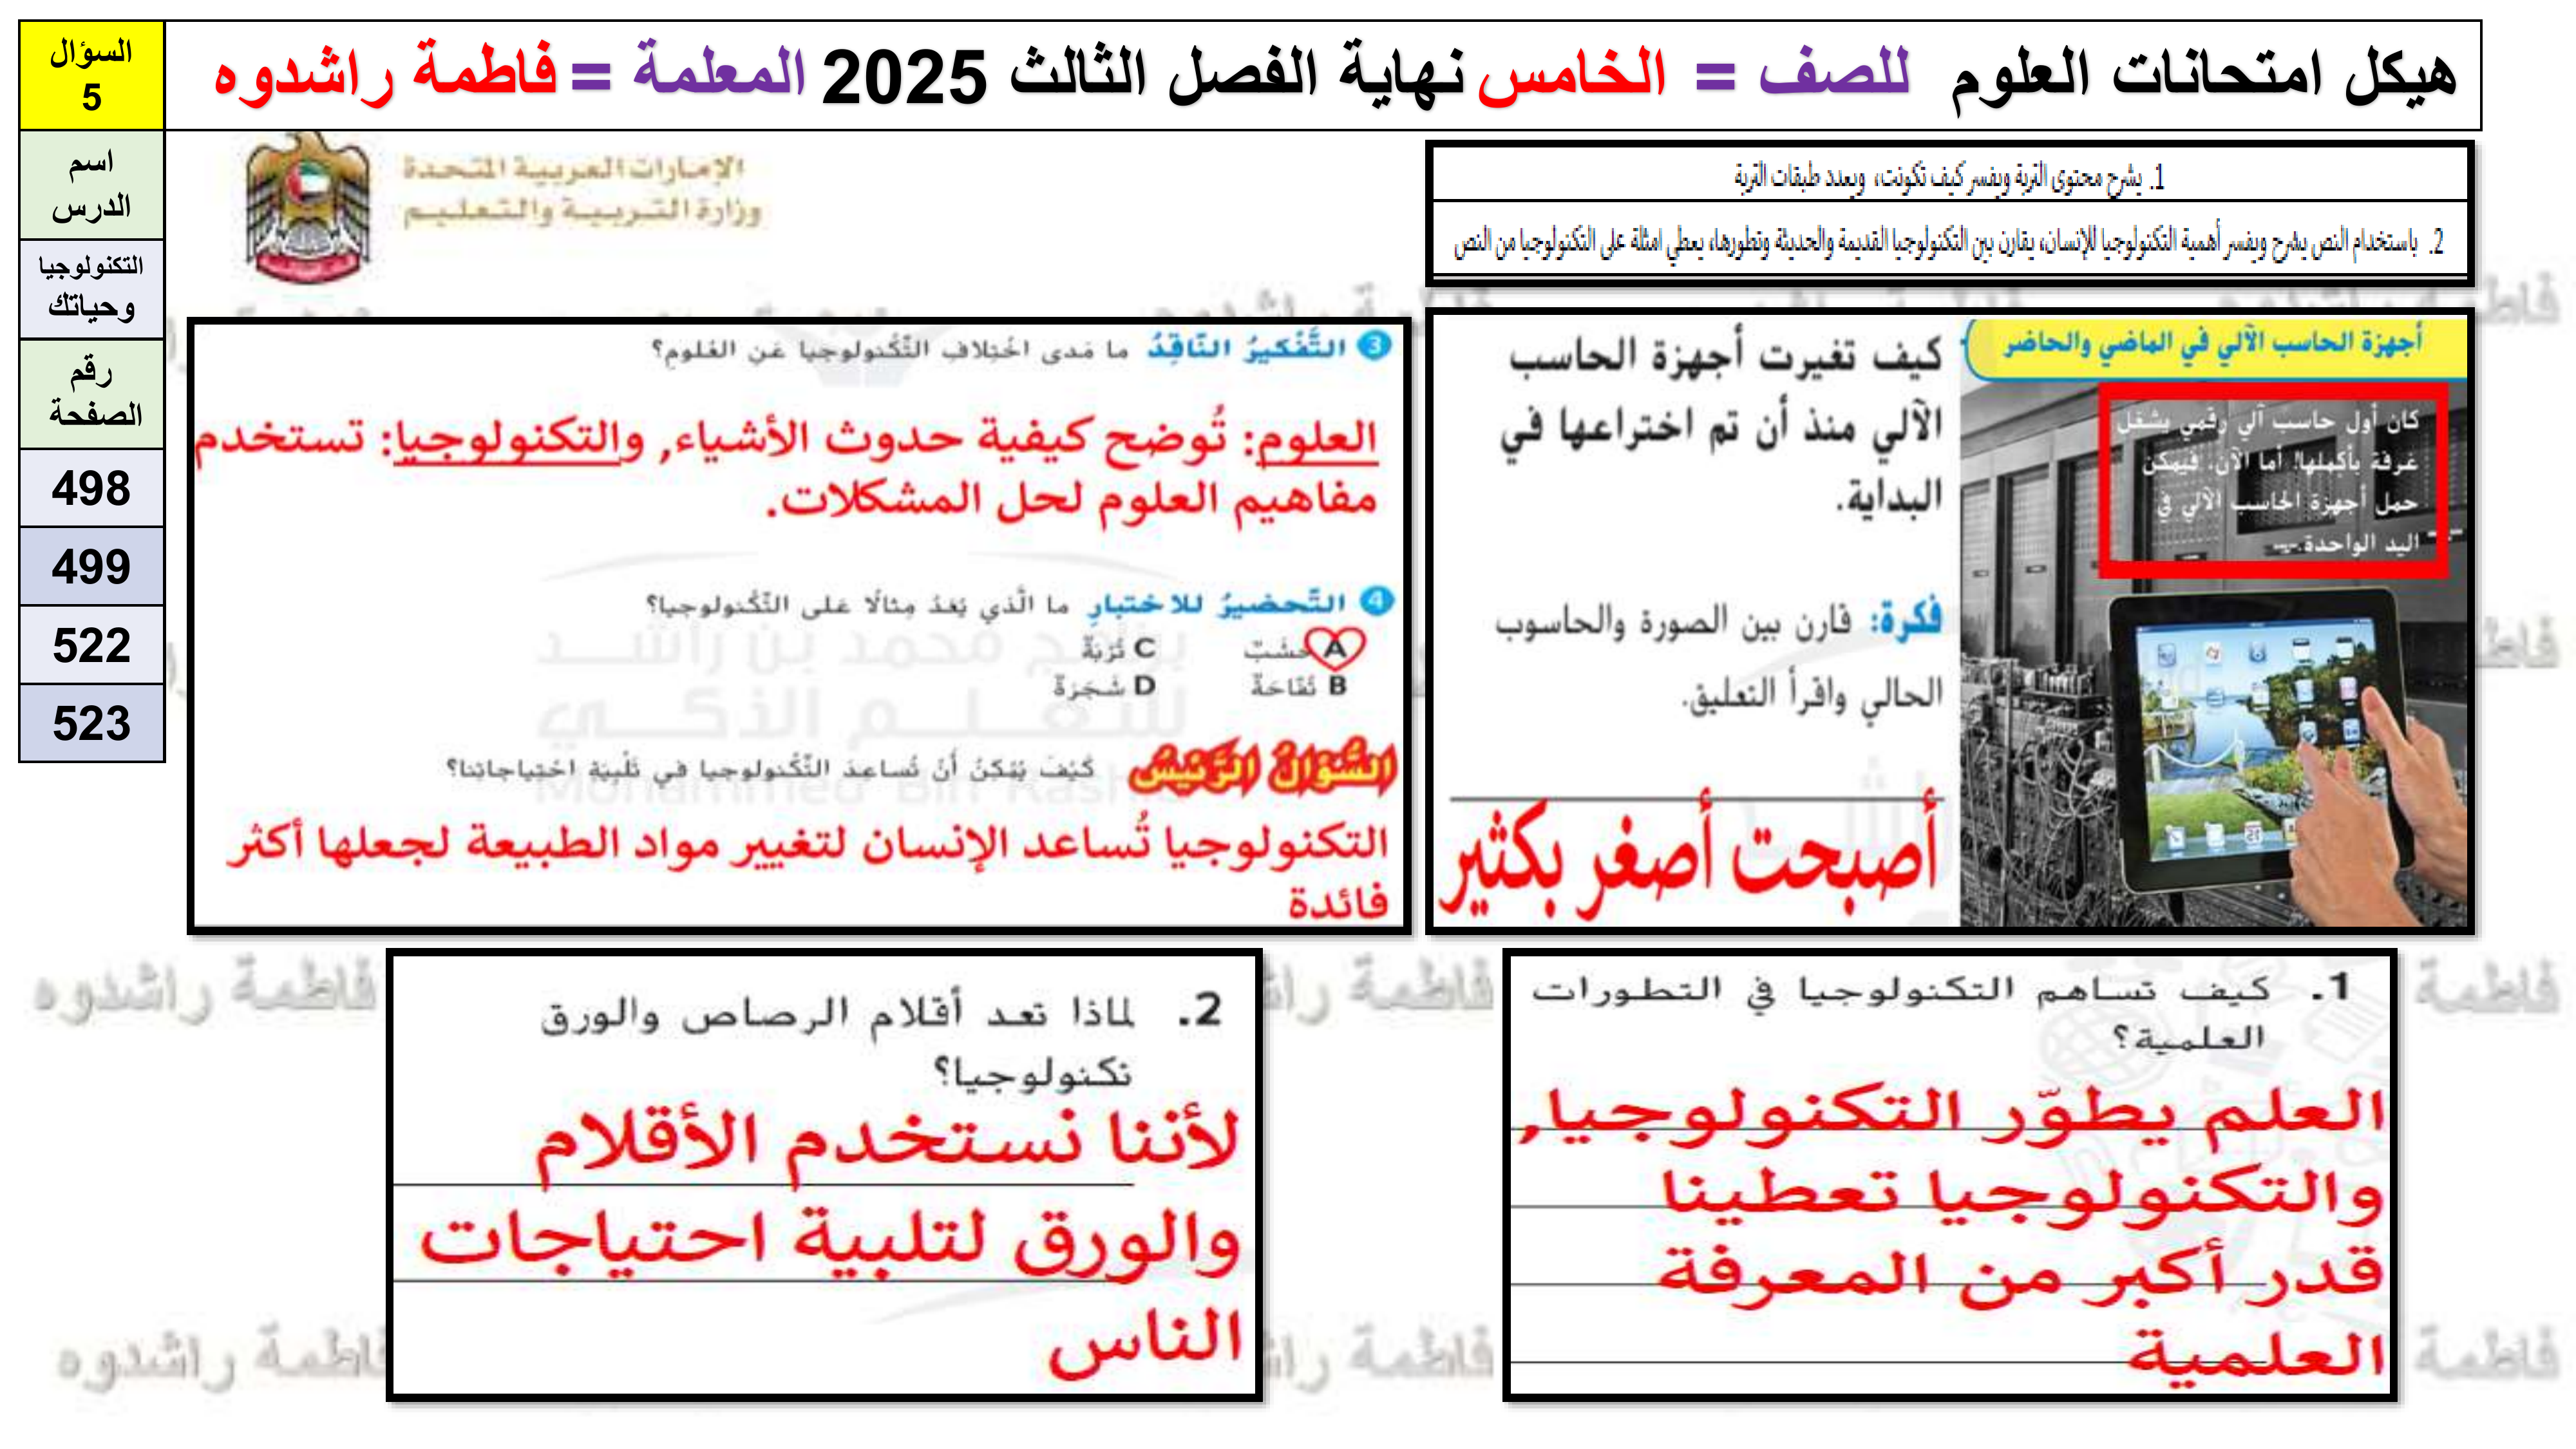 هيكل امتحانات العلوم للصف = الخامس نهاية الفصل الثالث 2025 المعلمة = فاطمة راشدوه
السؤال
5
اسم
الدرس
التكنولوجيا
وحياتك
رقم
الصفحة
498
499
522
523
الإمارات العربية المتحدة
وزارة التربية والتعليم
1. يشرح محتوى التربة ويفسر كيف تكونت، ويعدد طبقات التربة
2. باستخدام النص يشرح ويفسر أهمية التكنولوجيا للإنسان، يقارن بين التكنولوجيا القديمة والحديثة وتطورها، يعطي امثلة على التكنولوجيا من النص
أجهزة الحاسب الآلي في الماضي والحاضر
كان أول حاسب آلي رقمي يشغل
غرفة بأكملها! أما الآن، فيمكن
حمل أجهزة الحاسب الآلي في
اليد الواحدة.
كيف تغيرت أجهزة الحاسب
الآلي منذ أن تم اختراعها في
البداية.
فكرة: قارن بين الصورة والحاسوب
الحالي واقرأ التعليق.
أصبحت أصغر بكثير
3 التَّفْكيرُ النّاقِدُ ما مَدى اخْتِلافِ التِّكْنولوجيا عَنِ العُلومِ؟
العلوم: تُوضح كيفية حدوث الأشياء, والتكنولوجيا: تستخدم
مفاهيم العلوم لحل المشكلات.
4 التَّحضيرُ للاختبارِ ما الَّذي يُعَدُ مِثالًا عَلى التِّكْنولوجيا؟
A خشَبٌ
C تُرْبَةٌ
B تُفّاحَةٌ
D شَجَرَةٌ
السُّؤالُ الرَّئيسُ كَيْفَ يُمْكِنُ أَنْ تُساعِدَ التِّكْنولوجيا في تَلْبِيَةِ احْتِياجاتِنا؟
التكنولوجيا تُساعد الإنسان لتغيير مواد الطبيعة لجعلها أكثر
فائدة
برنامج محمد بن راشد
للتعلم الذكي
Mohammed Bin Rashid
1. كيف تساهم التكنولوجيا في التطورات
العلمية؟
العلم يطوّر التكنولوجيا,
والتكنولوجيا تعطينا
قدر أكبر من المعرفة
العلمية
2. لماذا تعد أقلام الرصاص والورق
تكنولوجيا؟
لأننا نستخدم الأقلام
والورق لتلبية احتياجات
الناس
فاطمة راشدوه
فاطمة راشدوه